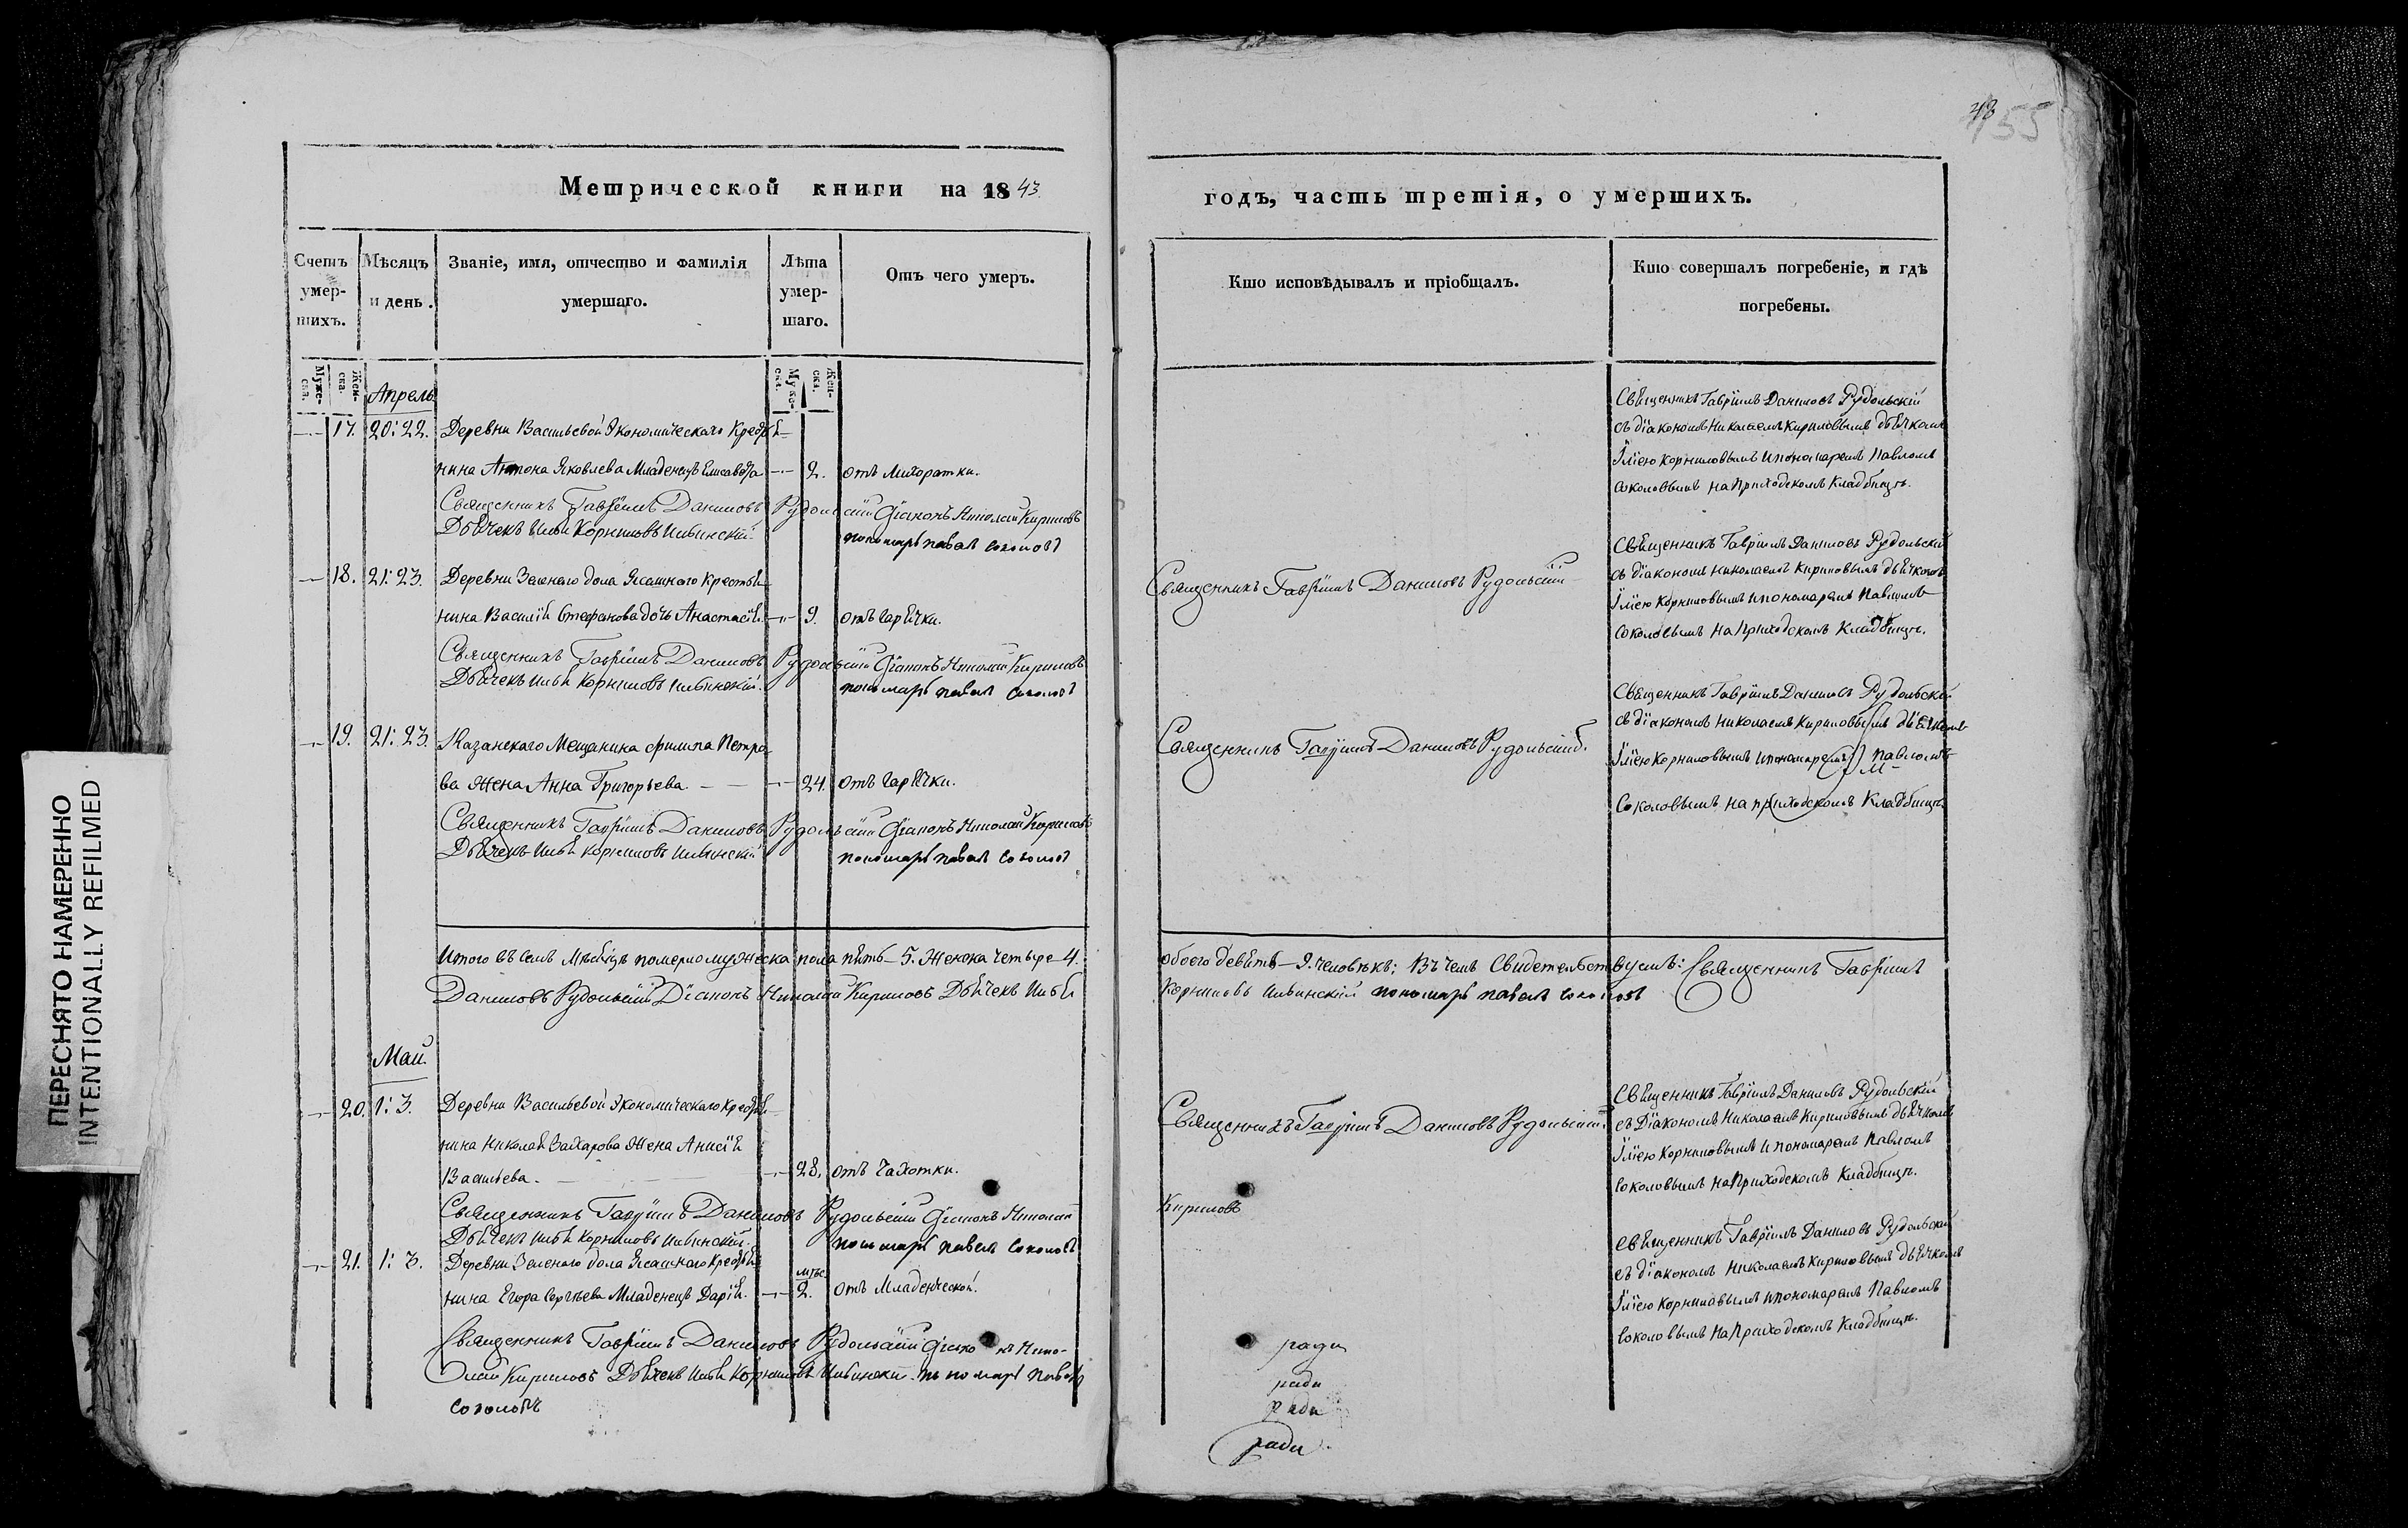 43
155
Метрической книги на 1843.
годъ, часть третія, о умершихъ.
Счетъ умер-шихъ.
Мѣсяцъ и день.
Званіе, имя, отчество и фамилія умершаго.
Лѣта умер-шаго.
Отъ чего умеръ.
Кто исповѣдывалъ и пріобщалъ.
Кто совершалъ погребеніе, и гдѣ погребены.
Муже-ска.
Жен-ска.
Муже-ска.
Жен-ска.
Апрель
17. 20: 22. Деревни Васильевой Экономическаго Крестья-
нина Антона Яковлева Младенецъ Елисавета 2. отъ Лихоратки.
Священникъ Гавріилъ Даниловъ Рудольскій Діаконъ Николай Кириловъ
Дьячекъ Илья Корниловъ Ильинскій. пономарь павелъ соколовъ
Священникъ Гавріилъ Даниловъ Рудольскій
съ діакономъ Николаемъ Кириловымъ дьячкомъ
Іліею Корниловымъ и пономаремъ Павломъ
Соколовымъ на Приходскомъ Кладбищѣ.
18. 21: 23. Деревни Зеленаго дола Ясашнаго Крестья-
нина Василія Стефанова дочь Анастасія 9. отъ Горячки.
Священникъ Гавріилъ Даниловъ Рудольскій Діаконъ Николай Кириловъ
Дьячекъ Илья Корниловъ Ильинскій. пономарь павелъ соколовъ
Священникъ Гавріилъ Даниловъ Рудольскій
Священникъ Гавріилъ Даниловъ Рудольскій
съ діакономъ Николаемъ Кириловымъ дьячкомъ
Іліею Корниловымъ и пономаремъ Павломъ
Соколовымъ на Приходскомъ Кладбищѣ.
19. 21: 23. Казанскаго Мещанина Филипа Петро-
ва Жена Анна Григорьева. 24. отъ Горячки.
Священникъ Гавріилъ Даниловъ Рудольскій Діаконъ Николай Кириловъ
Дьячекъ Илья Корниловъ Ильинскій пономарь павелъ соколовъ
Священникъ Гавріилъ Даниловъ Рудольскій.
Священникъ Гавріилъ Даниловъ Рудольскій
съ діакономъ Николаемъ Кириловымъ дьячкомъ
Іліею Корниловымъ и пономаремъ Павломъ
Соколовымъ на приходскомъ Кладбищѣ.
Итого въ семъ Мѣсяцѣ померло мужеска пола пять - 5. Женска четыре 4. обоего девять - 9. человѣкъ; Въ чемъ Свидетельствуемъ: Священникъ Гавріилъ
Даниловъ Рудольскій Діаконъ Николай Кириловъ Дьячекъ Илья Корниловъ Ильинскій пономарь павелъ соколовъ
Май.
20. 1: 3. Деревни Васильевой Экономическаго Крестья-
нина Николая Захарова Жена Анисія
Васильева. 28. отъ Чахотки.
Священникъ Гавріилъ Даниловъ Рудольскій Діаконъ Николай Кириловъ
Дьячекъ Илья Корниловъ Ильинскій. пономарь павелъ соколовъ
Священникъ Гавріилъ Даниловъ Рудольскій.
Священникъ Гавріилъ Даниловъ Рудольскій
съ Діакономъ Николаемъ Кириловымъ дьячкомъ
Іліею Корниловымъ и пономаремъ Павломъ
Соколовымъ на Приходскомъ Кладбищѣ.
21. 1: 3. Деревни Зеленаго дола Ясашнаго Крестья-
мѣс.
нина Егора Сергѣева Младенецъ Дарія. 2. отъ Младенческой.
Священникъ Гавріилъ Даниловъ Рудольскій Діаконъ Нико-
лай Кириловъ Дьячекъ Илья Корниловъ Ильинскій. пономарь павелъ
соколовъ
Священникъ Гавріилъ Даниловъ Рудольскій
съ діакономъ Николаемъ Кириловымъ дьячкомъ
Іліею Корниловымъ и пономаремъ Павломъ
Соколовымъ на Приходскомъ Кладбищѣ.
ради
ради
ради
ради
ПЕРЕСНЯТО НАМЕРЕННО
INTENTIONALLY REFILMED